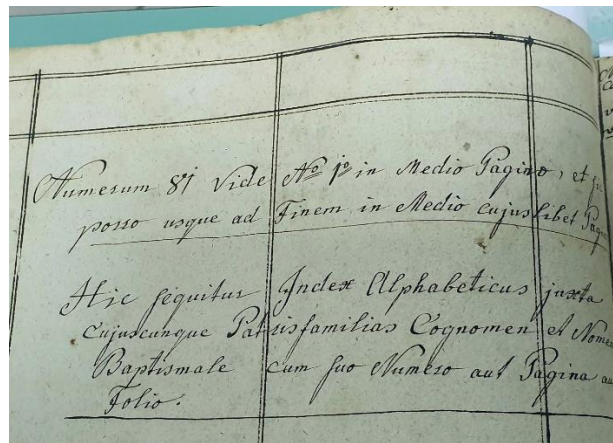 Numerum 81 Vide No 1o in Medio Pagina, et
porro usque ad Finem in Medio cujuslibet
Hic sequitur Index Alphabeticus juxta
Cujuscunque Patrisfamilias Cognomen et
Baptismale cum suo Numero aut Pagina
Folio.